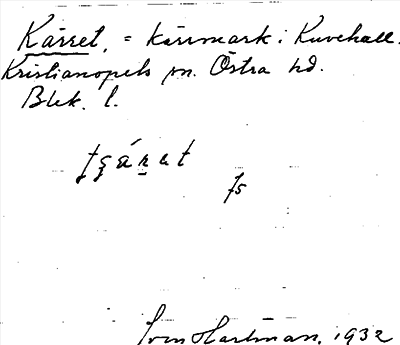 Kärret, = kärrmark i Kuvehall.
Kristianopels sn. Östra hd.
Blek. l.
fs
Sven Hartman, 1932